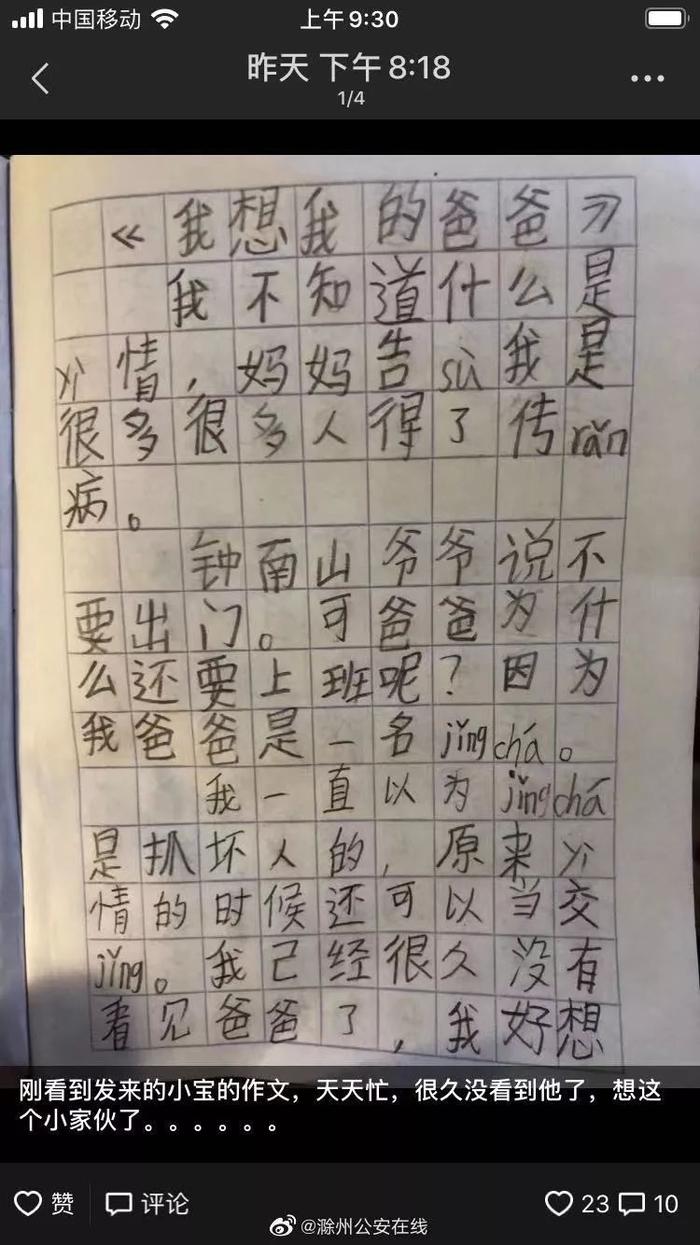 中国移动 上午9:30
昨天 下午8:18
1/4
《我想我的爸爸》
我不知道什么是
yì情，妈妈告sù我是
很多很多人得了传rǎn
病。
钟南山爷爷说不
要出门。可爸爸为什
么还要上班呢？因为
我爸爸是一名jǐngchá。
我一直以为jǐngchá
是抓坏人的，原来yì
情的时候还可以当交
jǐng。我已经很久没有
看见爸爸了，我好想
刚看到发来的小宝的作文，天天忙，很久没看到他了，想这
个小家伙了。。。。。。
赞 评论 23 10
@滁州公安在线